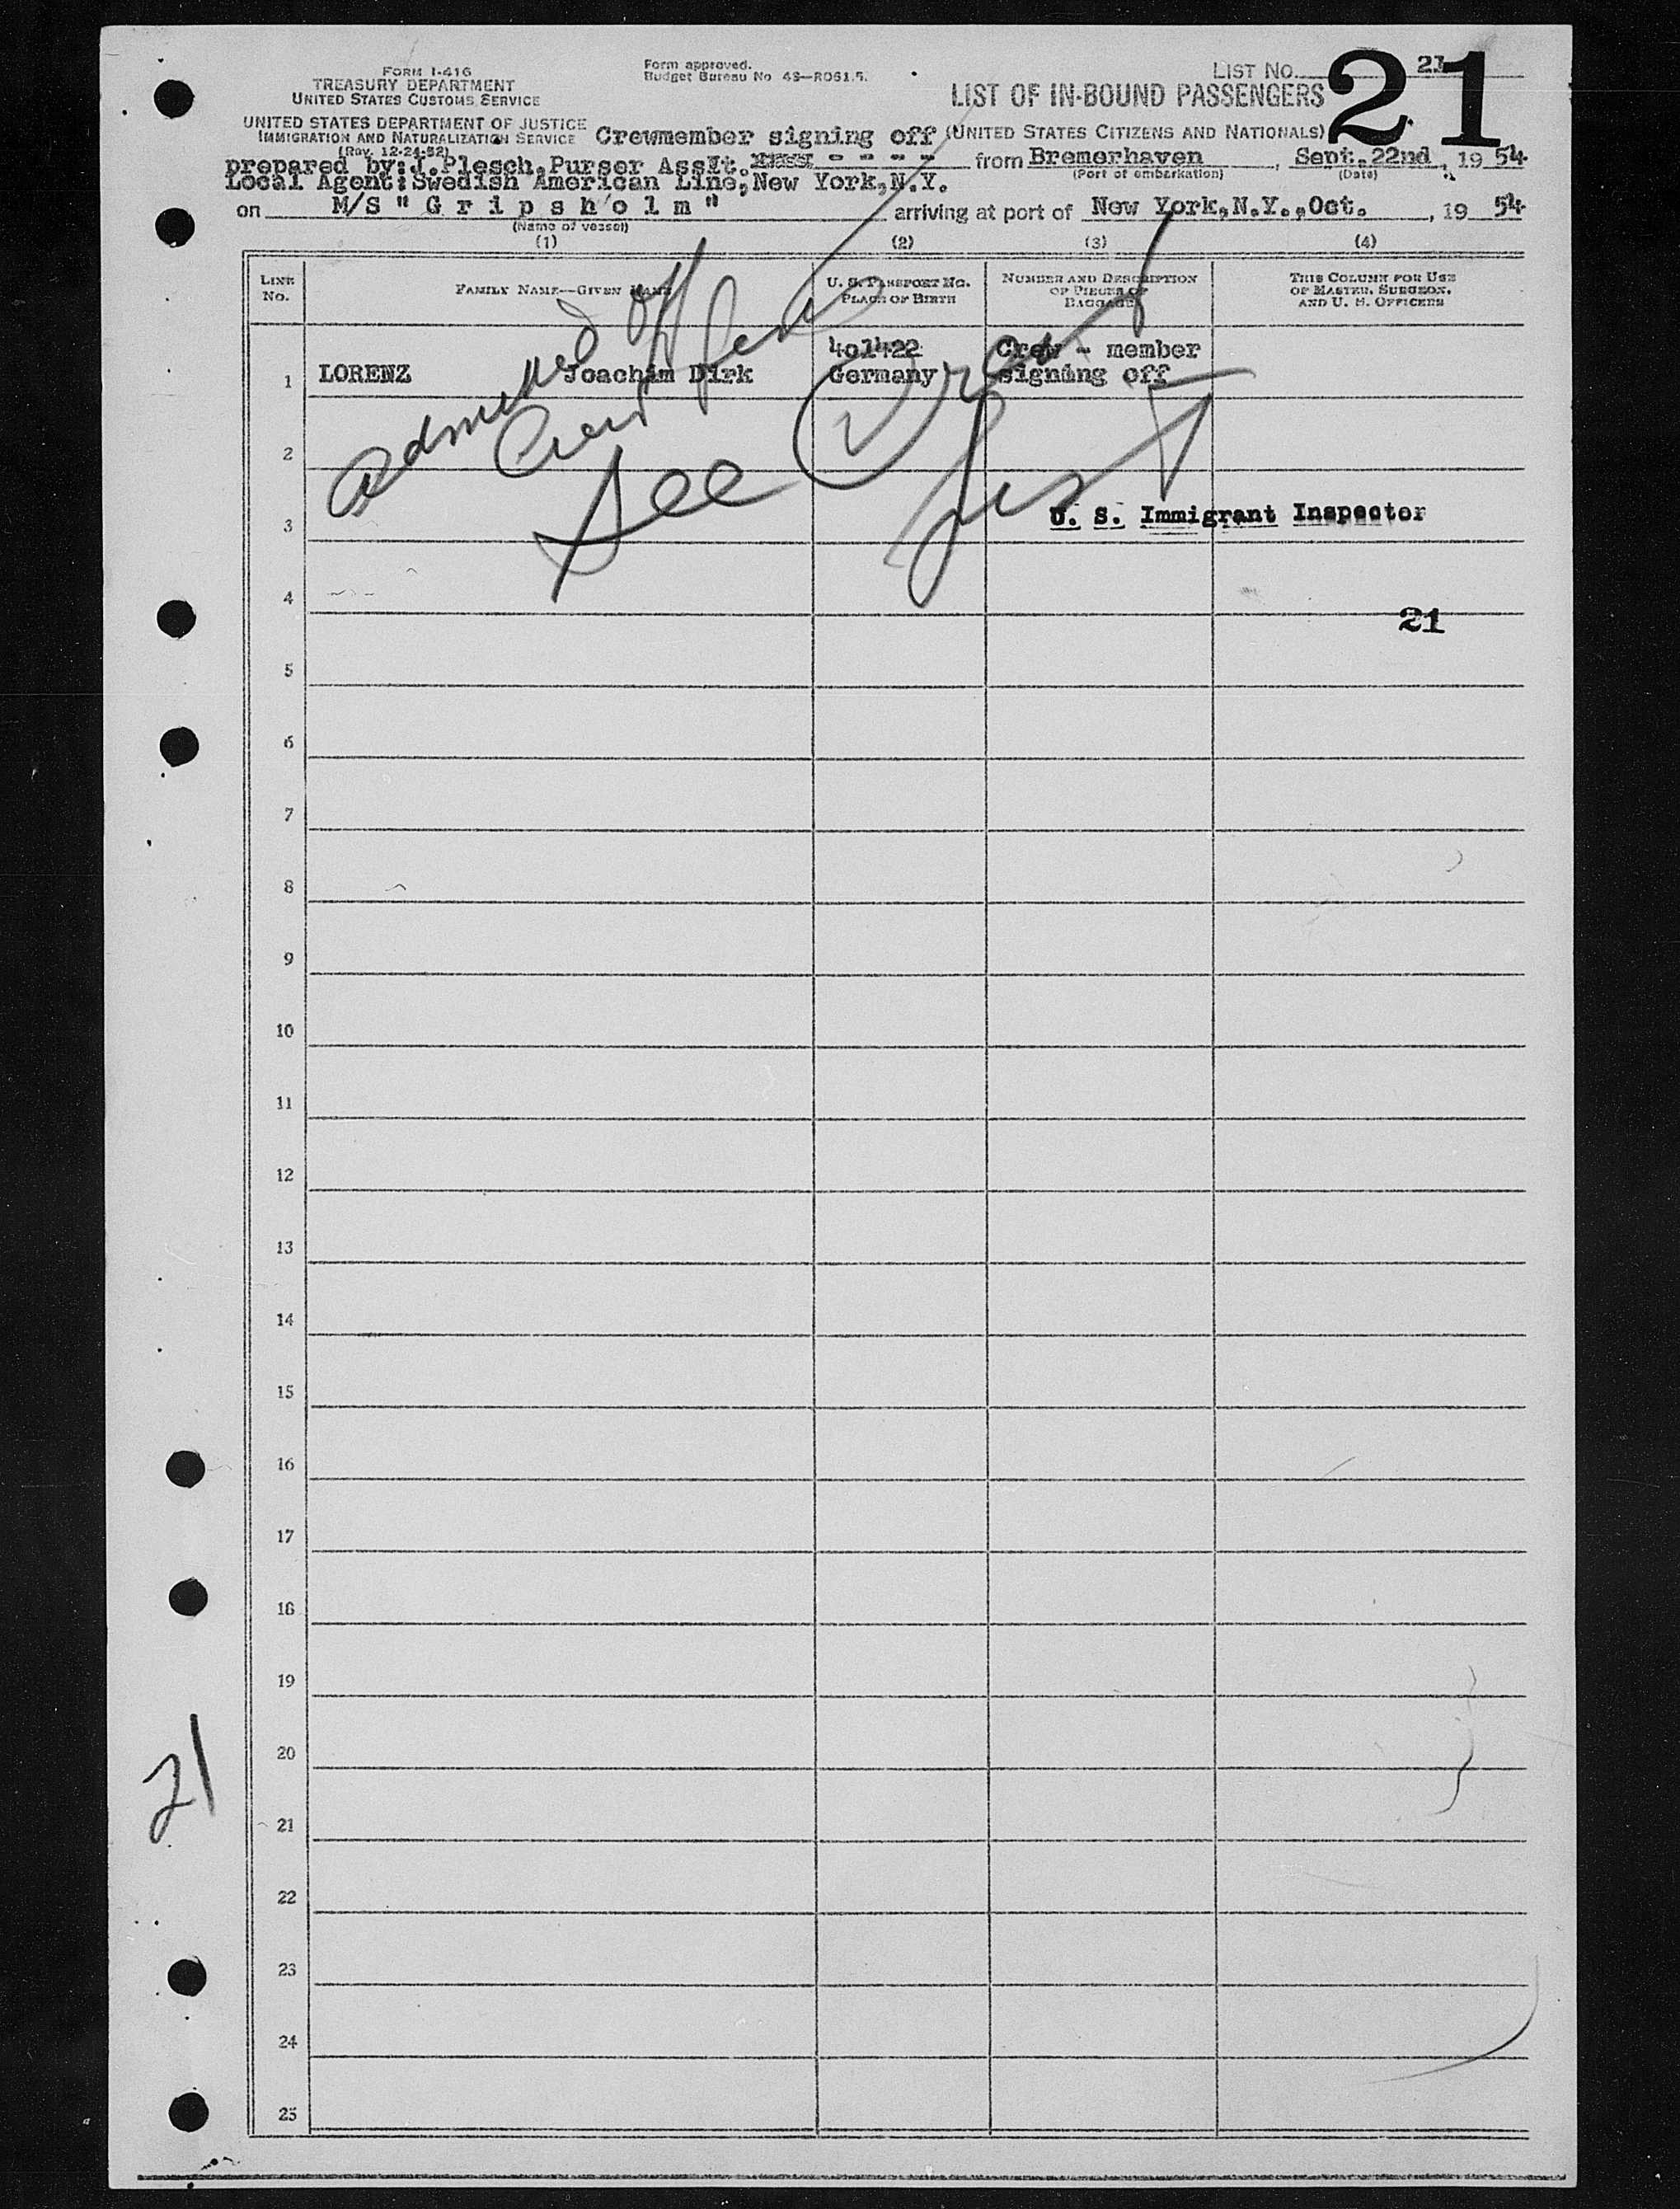 FORM I-416
TREASURY DEPARTMENT
UNITED STATES CUSTOMS SERVICE
UNITED STATES DEPARTMENT OF JUSTICE
IMMIGRATION AND NATURALIZATION SERVICE
(Rev. 12-24-52)
Form approved.
Budget Bureau No 43—R061.5.
LIST NO. 21
21
LIST OF IN-BOUND PASSENGERS
Crewmember signing off (UNITED STATES CITIZENS AND NATIONALS)
prepared by: J. Plesch, Purser Ass't. from Bremerhaven, Sept. 22nd, 19 54
(Port of embarkation) (Date)
Local Agent: Swedish American Line, New York, N.Y.
on M/S "Gripsholm" arriving at port of New York, N.Y., Oct. , 19 54
(Name of vessel)
(1) (2) (3) (4)
LINE No.
FAMILY NAME—GIVEN NAME
U. S. PASSPORT NO.
PLACE OF BIRTH
NUMBER AND DESCRIPTION OF PIECES OF BAGGAGE
THIS COLUMN FOR USE OF MASTER, SURGEON, AND U. S. OFFICERS
401422 Crew - member
1 LORENZ Joachim Dirk Germany signing off
Admitted off
Crew
See Crew List
2
U. S. Immigrant Inspector
3
4
21
5
6
7
8
9
10
11
12
13
14
15
16
17
18
19
20
21
21
22
23
24
25